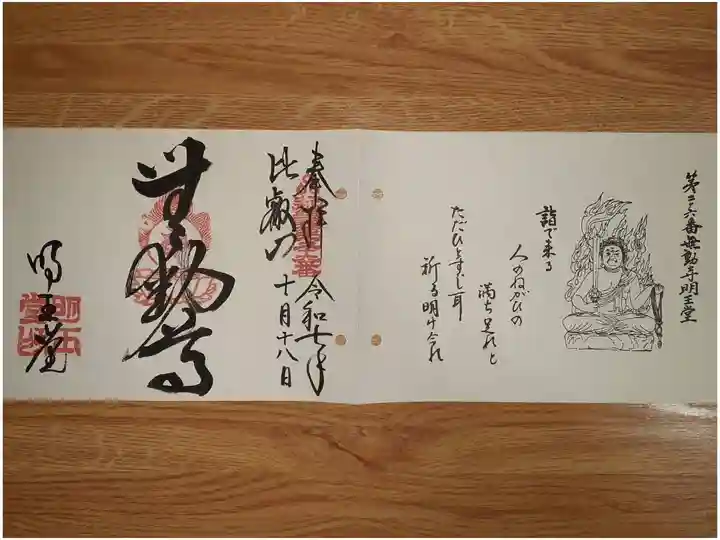 第二六番無動寺明王堂
詣で来る
人のねがひの
満ち足れと
ただひとすじ耳
祈る明け久れ
奉拝 令和七年
比叡山 十月十八日
無動尊
明王堂